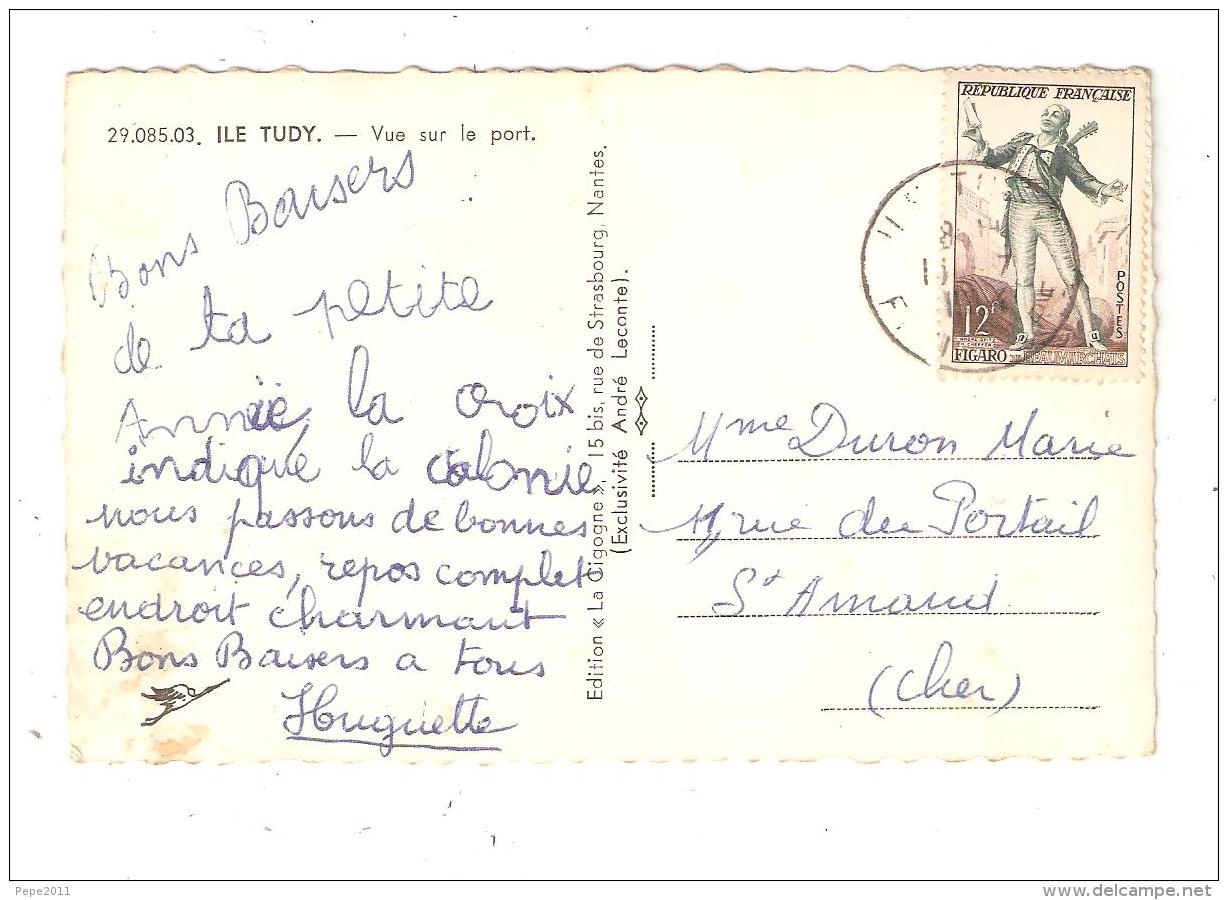 29.085.03. ILE TUDY. — Vue sur le port.
Bons Baisers
de ta petite
Annie, la croix
indique la colonie
nous passons de bonnes
vacances, repos complet
endroit charmant
Bons Baisers a tous
Huguette
Edition « La Cigogne », 15 bis, rue de Strasbourg, Nantes.
(Exclusivité André Leconte).
RÉPUBLIQUE FRANÇAISE
POSTES
12F
FIGARO DE BEAUMARCHAIS
Mme Duron Marie
rue du Portail
St Amand
(Cher)
Pepe2011
www.delcampe.net